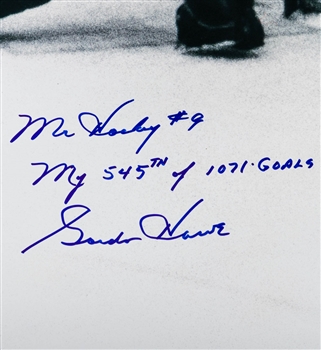 Mr Hockey #9
My 545TH of 1071·GOALS
Gordie Howe